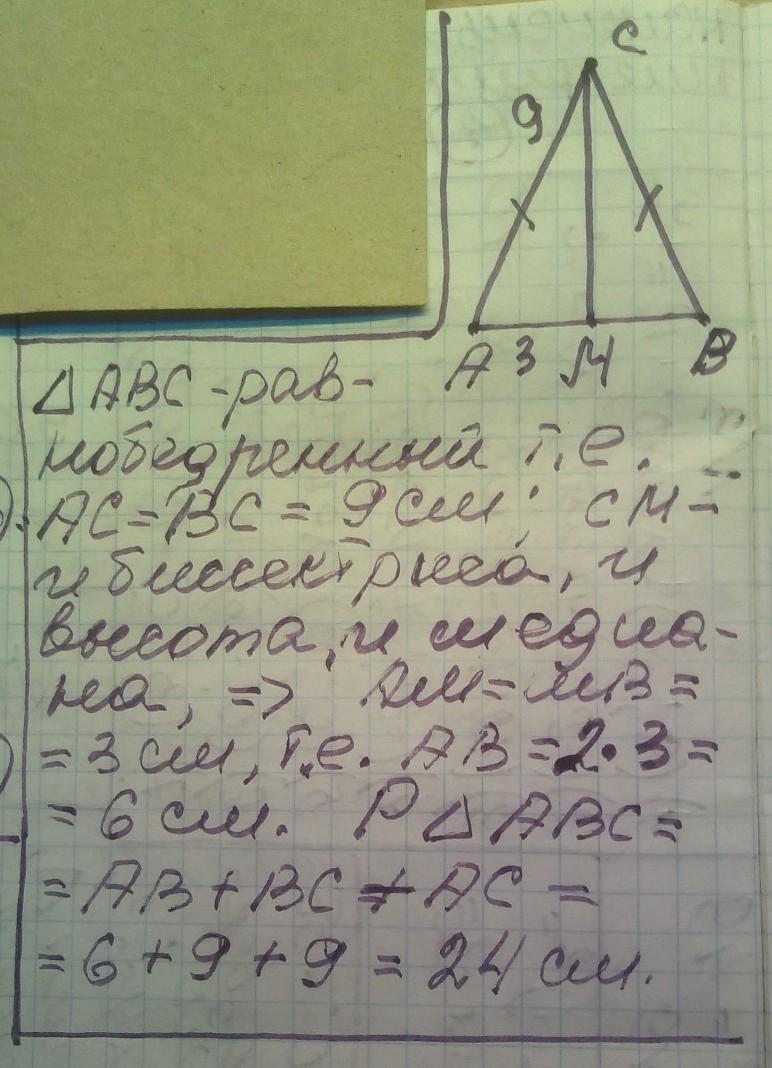 C
9
A 3 M B
△ABC - рав-
нобедренный т.е.
AC = BC = 9 см; CM -
и биссектриса, и
высота, и медиа-
на, => AM = MB =
= 3 см, т.е. AB = 2·3 =
= 6 см. P△ABC =
= AB + BC + AC =
= 6 + 9 + 9 = 24 см.